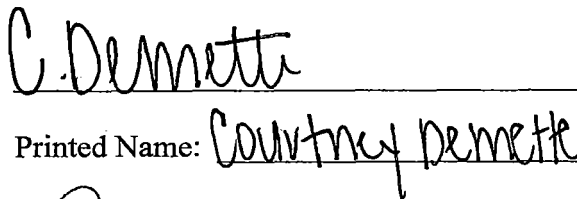 C. Demette
Printed Name: Courtney Demette